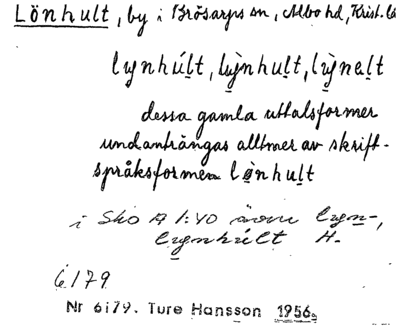 Lönhult, by i Brösarps sn, Albo hd, Krist. lä
lynhúlt, lỳnhult, lỳnelt
dessa gamla uttalsformer
undanträngas alltmer av skrift-
språksformen lönhult
i Sko A 1:40 även lyn-,
lynhúlt H.
6179
Nr 6179. Ture Hansson 1956.